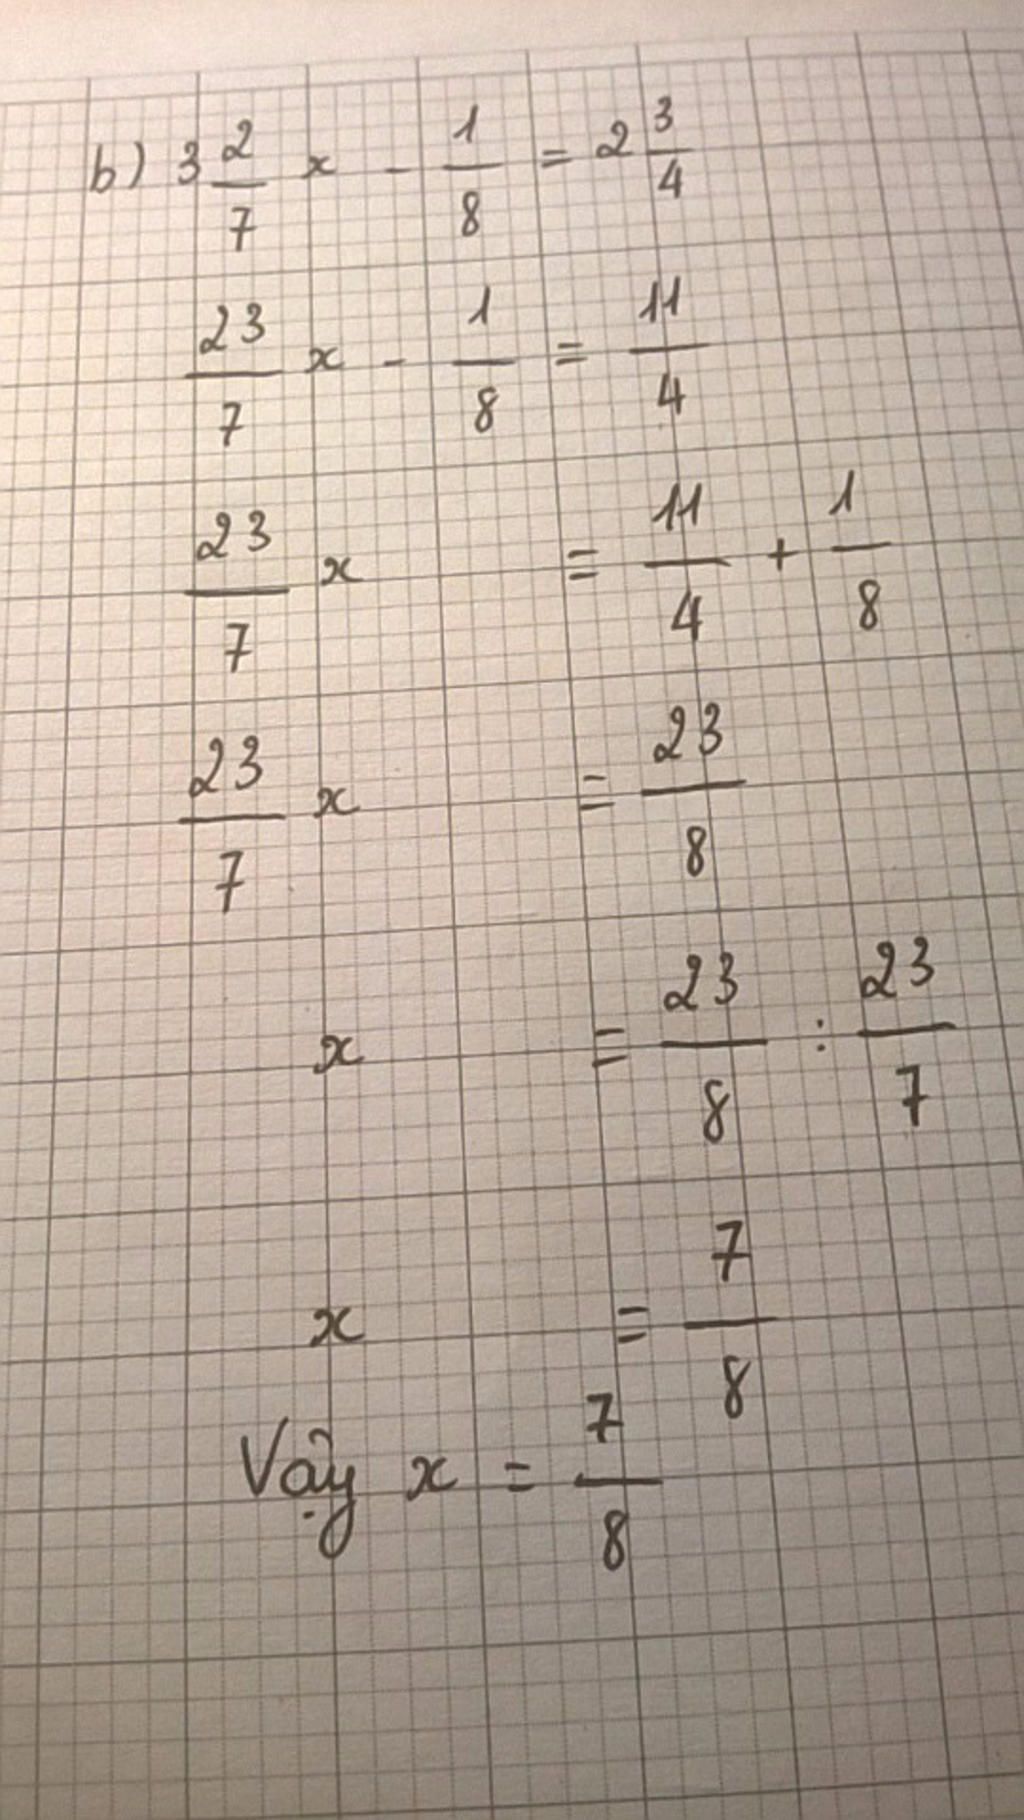 b) 3 2/7 x - 1/8 = 2 3/4
23/7 x - 1/8 = 11/4
23/7 x = 11/4 + 1/8
23/7 x = 23/8
x = 23/8 : 23/7
x = 7/8
Vậy x = 7/8